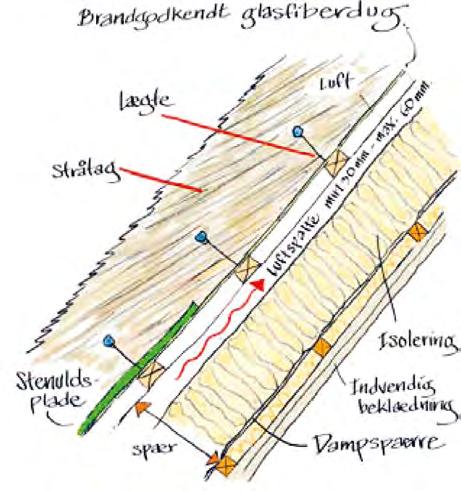 Brandgodkendt glasfiberdug
Luft
Lægte
Stråtag
Luftspalte min 30 mm - max. 60 mm.
Isolering
Stenulds-
plade
Indvendig
beklædning
spær
Dampspærre